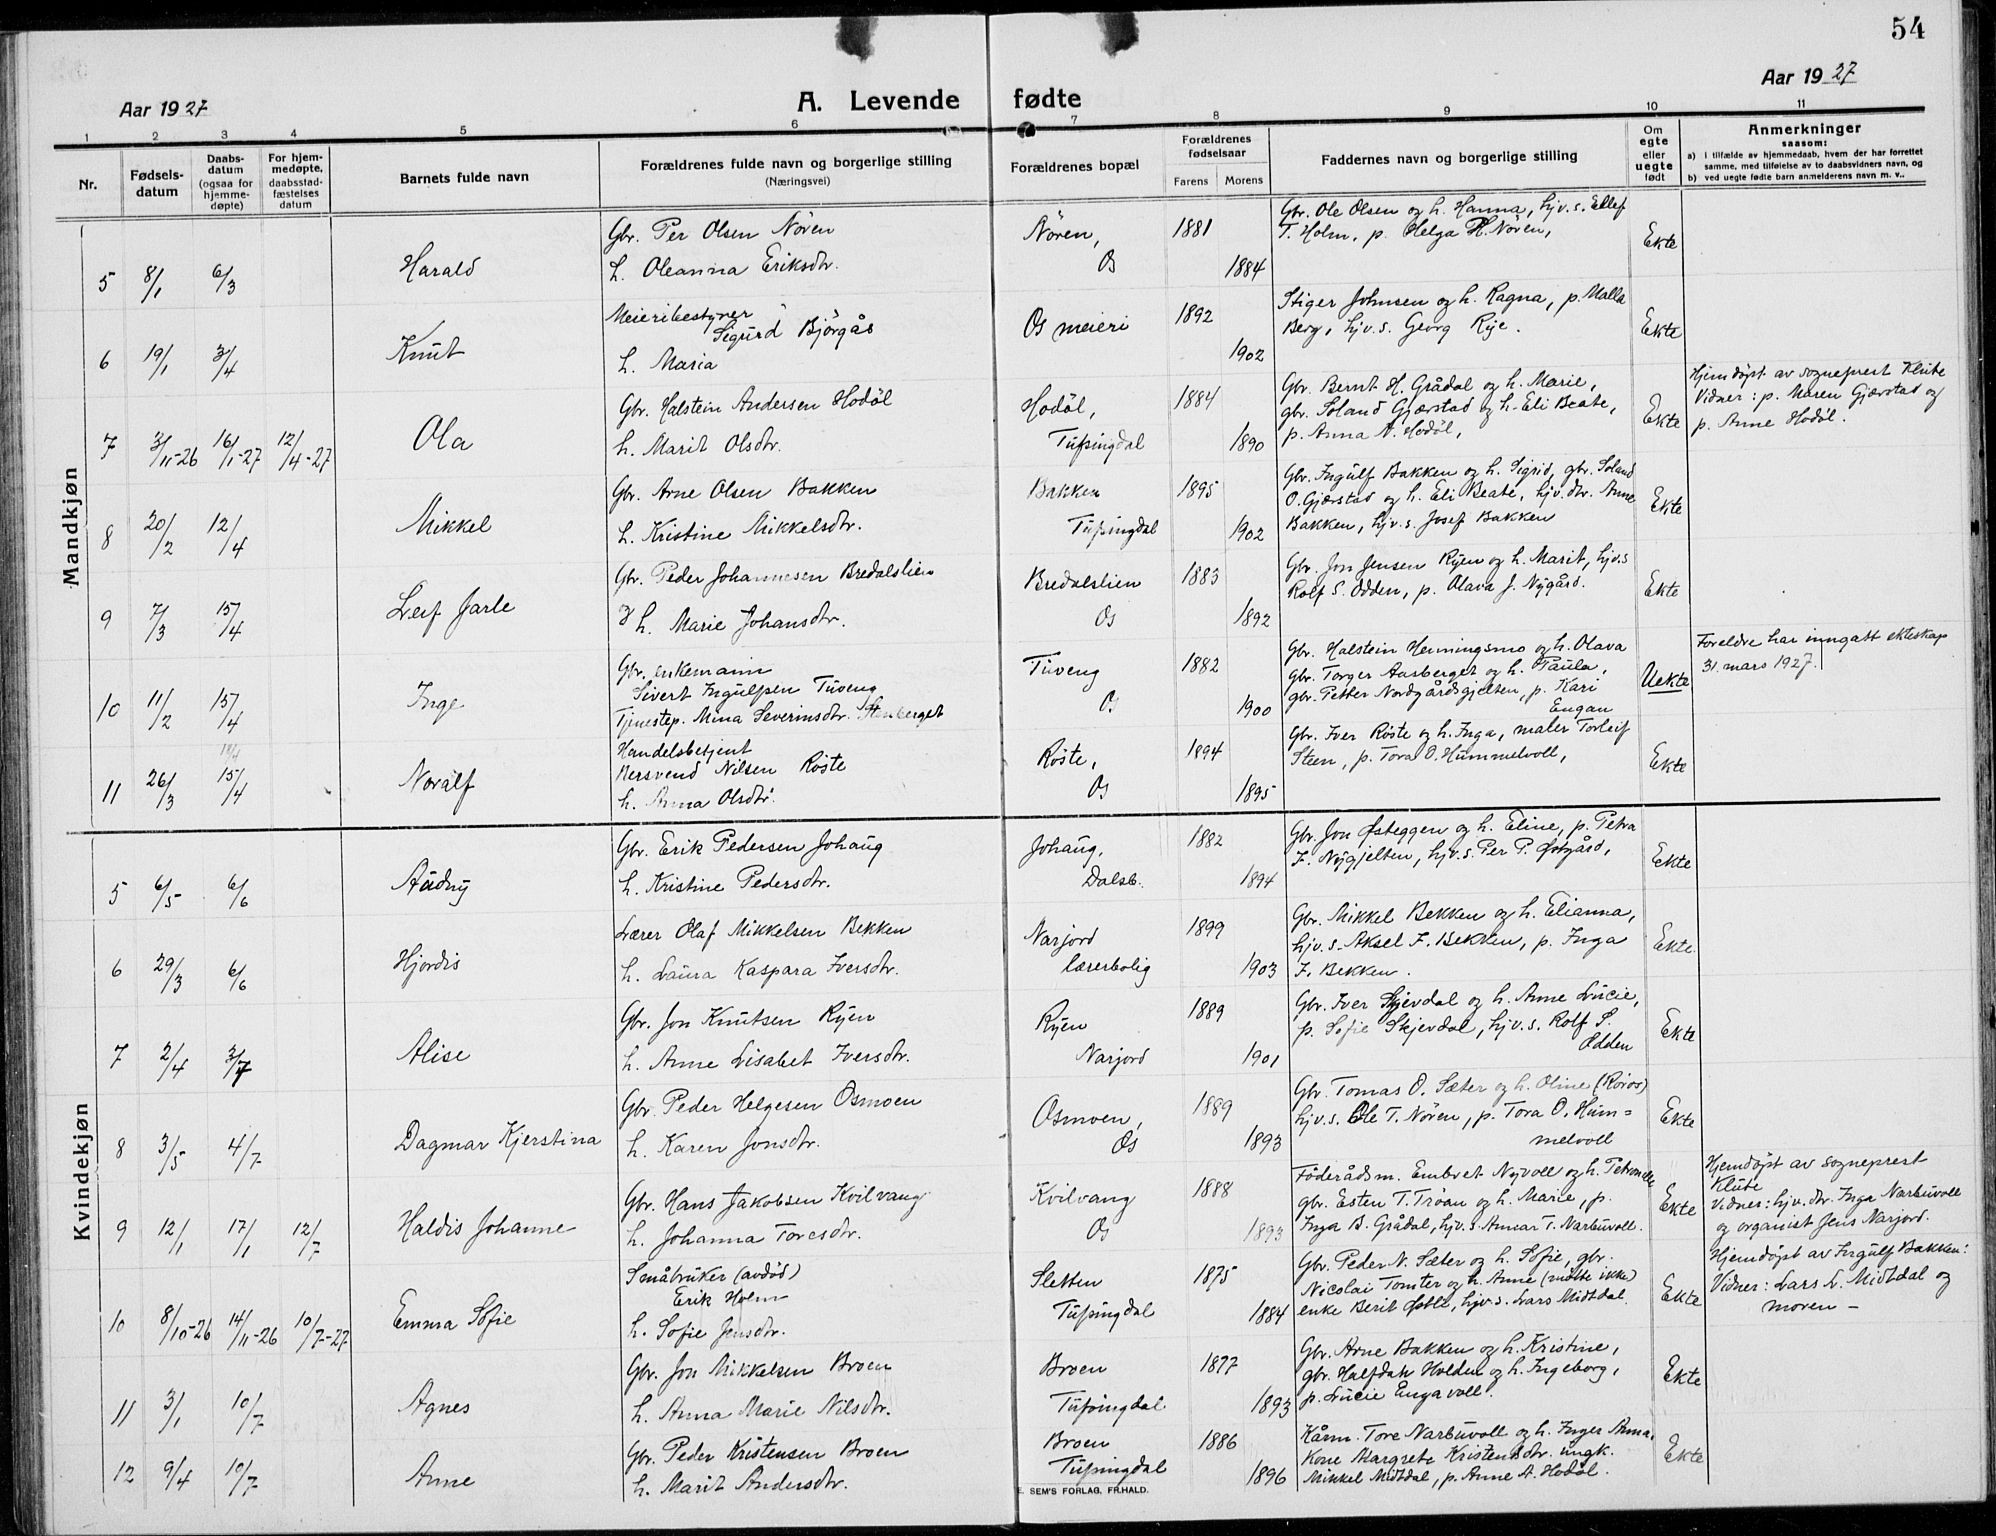 54
Aar 1927
A. Levende fødte
Aar 1927
1 2 3 4 5 6 7 8 9 10 11
Nr.
Fødsels-
datum
Daabs-
datum
(ogsaa for
hjemme-
døpte)
For hjem-
medøpte,
daabsstad-
fæstelses
datum
Barnets fulde navn
Forældrenes fulde navn og borgerlige stilling
(Næringsvei)
Forældrenes bopæl
Forældrenes
fødselsaar
Farens Morens
Faddernes navn og borgerlige stilling
Om
egte
eller
uegte
født
Anmerkninger
saasom:
a) i tilfælde av hjemmedaab, hvem der har forrettet
samme, med tilføielse av to daabsvidners navn, og
b) ved uegte fødte barn anmelderens navn m. v..
Mandkjøn
5 8/1 6/3 Harald
Gbr. Per Olsen Nören
h. Oleanna Eriksdtr.
Nören,
Os
1881
1884
Gbr. Ole Olsen og h. Hanna, hjv.s. Ellef
T. Holm, p. Helga H. Nören,
Ekte
6 19/1 3/4 Knut
Meieribestyrer
Sigurd Bjørgås
h. Maria
Os meieri
1892
1902
Stiger Johnsen og h. Ragna, p. Malla
Berg, hjv.s. Georg Rye.
Ekte
7 3/11-26 16/1-27 12/4-27 Ola
Gbr. Halstein Andersen Hodöl
h. Marit Olsdtr.
Hodöl,
Tufsingdal
1884
1890
Gbr. Bernt H. Grådal og h. Marie,
gbr. Soland Gjærstad og h. Eli Beate,
p. Anna N. Hodöl,
Ekte
Hjemdöpt av sogneprest Klube
Vidner: p. Maren Gjærstad og
p. Anne Hodöl.
8 20/2 12/4 Mikkel
Gbr. Arne Olsen Bakken
h. Kristine Mikkelsdtr.
Bakken
Tufsingdal
1895
1902
Gbr. Ingulf Bakken og h. Sigrid, gbr. Soland
O. Gjærstad og h. Eli Beate, hjv. dtr. Anne
Bakken, hjv.s. Josef Bakken
Ekte
9 7/3 15/4 Leif Jarle
Gbr. Peder Johannesen Bredalslien
h. Marie Johansdtr.
Bredalslien
Os
1883
1892
Gbr. Jon Jensen Ryen og h. Marit, hjv.s
Rolf S. Odden, p. Olava J. Nygård.
Ekte
10 11/2 15/4 Inge
Gbr. enkemann
Sivert Ingulfsen Tuveng
Tjenestep. Mina Severinsdtr. Stenberget
Tuveng
Os
1882
1900
Gbr. Halstein Henningsmo og h. Olava
gbr. Torger Aasberget og h. Paula,
gbr. Petter Nordgårdsgjelten, p. Kari
Engan
Uekte
Foreldre har inngått ekteskap
31. mars 1927.
11 26/3 15/4 Noralf
Handelsbetjent
Bersvend Nilsen Röste
h. Anna Olsdtr.
Röste,
Os
1894
1895
Gbr. Iver Röste og h. Inga, maler Torleif
Steen, p. Tora O. Hummelvoll,
Ekte
Kvindekjøn
5 6/5 6/6 Audny
Gbr. Erik Pedersen Johaug
h. Kristine Pedersdtr.
Johaug,
Dalsb.
1882
1894
Gbr. Jon Østeggen og h. Eline, p. Petra
F. Nygjelten, hjv.s. Per P. Østgård,
Ekte
6 29/3 6/6 Hjördis
Lærer Olaf Mikkelsen Bekken
h. Laura Kaspara Iversdtr.
Narjord
lærerbolig
1899
1903
Gbr. Mikkel Bekken og h. Elianna,
hjv.s. Aksel I. Bekken, p. Inga
I. Bekken.
Ekte.
7 2/4 3/7 Alise
Gbr. Jon Knutsen Ryen
h. Anne Lisabet Iversdtr.
Ryen
Narjord
1889
1901
Gbr. Iver Skjevdal og h. Anne Lucie,
p. Sofie Skjevdal, hjv.s. Rolf S.
Odden
Ekte
8 3/5 4/7 Dagmar Kjerstina
Gbr. Peder Helgesen Osmoen
h. Karen Jonsdtr.
Osmoen,
Os
1889
1893
Gbr. Tomas O. Sæter og h. Oline (Röros)
hjv.s. Ole T. Nören, p. Tora O. Hum=
melvoll
Ekte
9 12/1 17/1 12/7 Haldis Johanne
Gbr. Hans Jakobsen Kvilvang
h. Johanna Toresdtr.
Kvilvang
Os
1888
1893
Föderådsm. Embret Nyvoll og h. Petronelle
gbr. Esten T. Tröan og h. Marie, p.
Inga B. Grådal, hjv.s. Annar T. Narbuvoll.
Ekte
Hjemdöpt av sogneprest
Klube
Vidner: hjv. dtr. Inga Narbuvoll
og organist Jens Narjord.
10 8/10-26 14/11-26 10/7-27 Emma Sofie
Småbruker (avdöd)
Erik Holm
h. Sofie Jensdtr.
Sletten
Tufsingdal
1875
1884
Gbr. Peder N. Sæter og h. Sofie, gbr.
Nicolai Tomter og h. Anne (mötte ikke)
enke Berit Østli, hjv.s. Lars Midtdal.
Ekte
Hjemdöpt av Ingulf Bakken:
Vidner: Lars L. Midtdal og
moren –
11 3/1 10/7 Agnes
Gbr. Jon Mikkelsen Broen
h. Anna Marie Nilsdtr.
Broen
Tufsingdal
1877
1893
Gbr. Arne Bakken og h. Kristine,
gbr. Halfdan Holden og h. Ingeborg,
p. Lucie Engavoll.
Ekte
12 9/4 10/7 Anne
Gbr. Peder Kristensen Broen
h. Marit Andersdtr.
Broen
Tufsingdal
1886
1896
Kårm. Tore Narbuvoll og h. Inger Anna,
Kone Margrete Kristensdtr. ungk.
Mikkel Midtdal, p. Anne A. Hodöl.
Ekte
E. SEM'S FORLAG, FR.HALD.